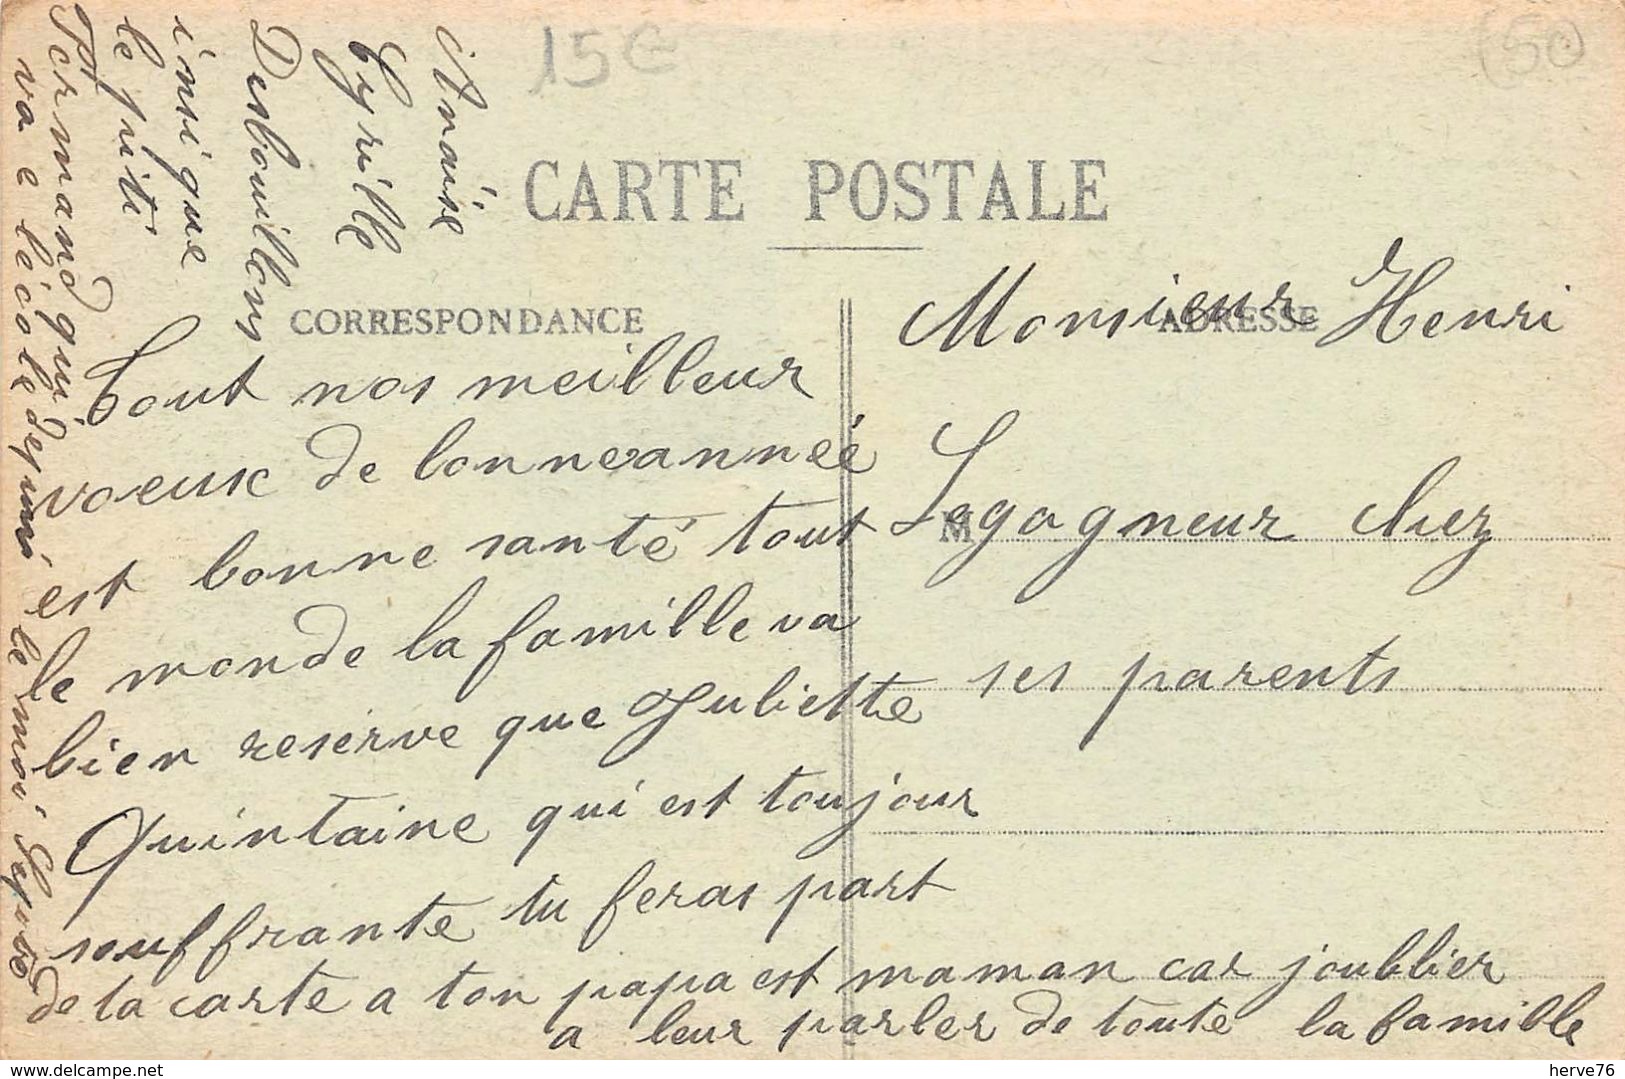 15€
50
CARTE POSTALE
CORRESPONDANCE
ADRESSE
M
Monsieur Henri
Legagneur chez
ses parents
Tout nos meilleur
voeux de bonneannéé
est bonne santé tout
le monde la famille va
bien reserve que Juliette
Quintaine qui est toujour
souffrante tu feras part
de la carte a ton papa est maman car joublier
a leur parler de toute la famille
Cyrille
Desbouillons
insi que
le petit
Fermand qui
va e lécole depuis le moi
www.delcampe.net
herve76